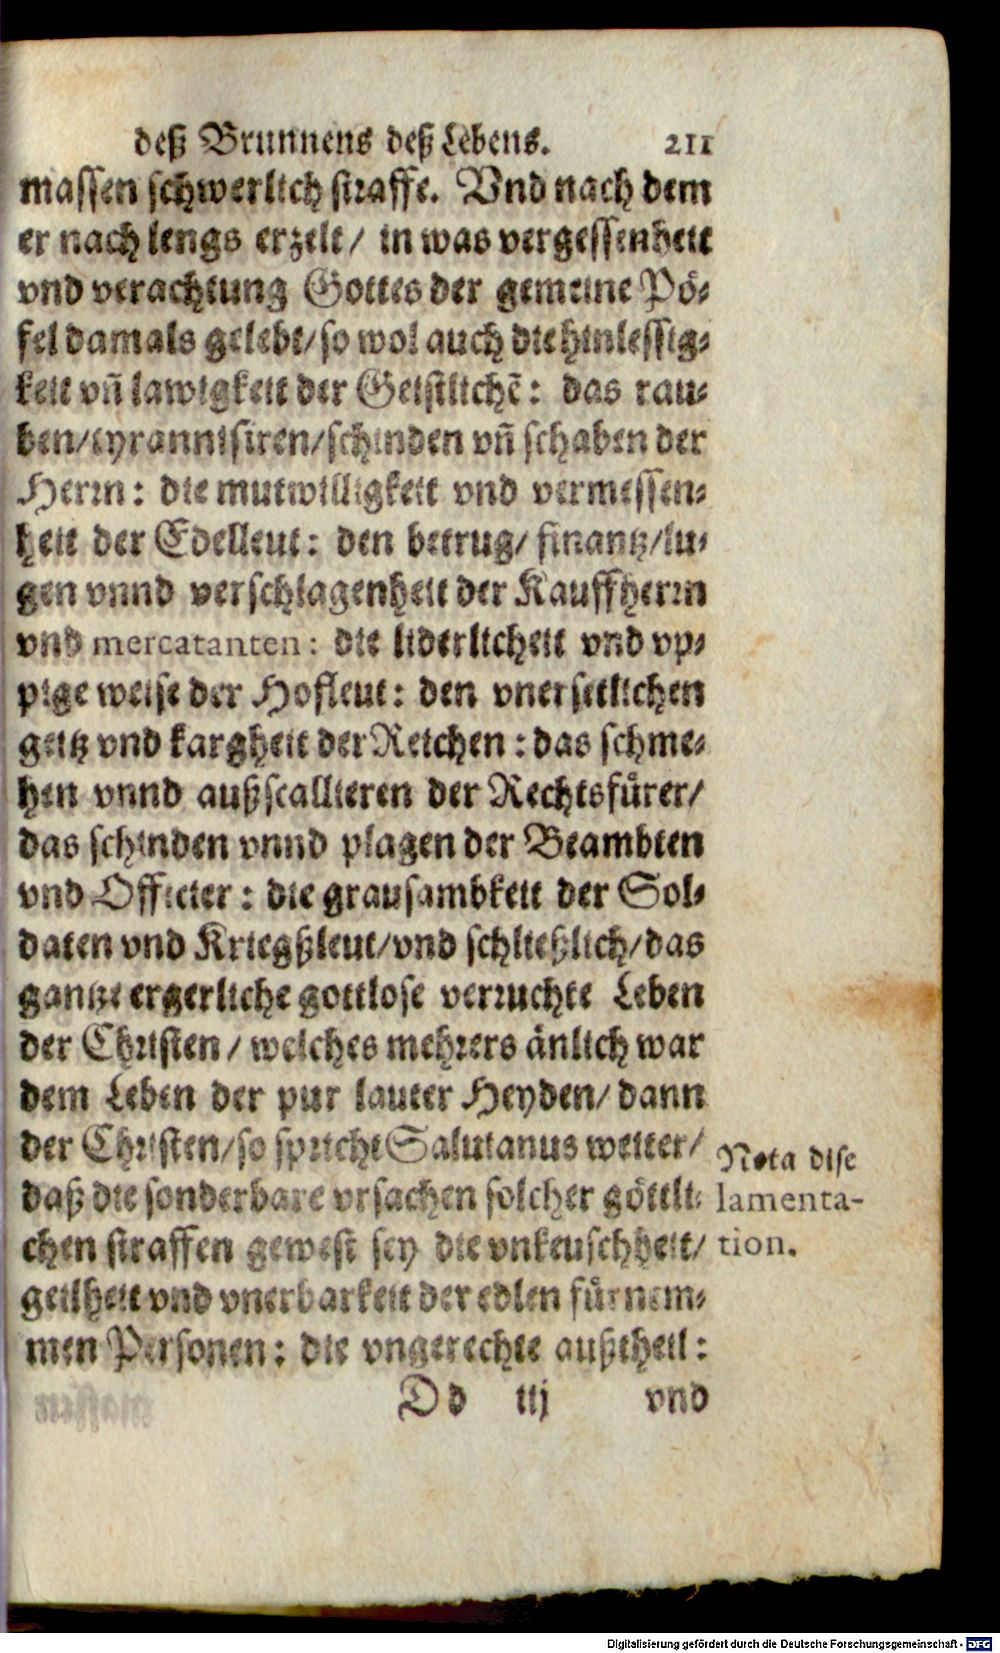 deß Brunnens deß Lebens. 211
massen schwerlich straffe. Vnd nach dem
er nach lengs erzelt/ in was vergessenheit
vnd verachtung Gottes der gemeine Pö-
fel damals gelebt/so wol auch die hinlessig-
keit vn̄ lawigkeit der Geistlichē: das rau-
ben/tyrannisiren/schinden vn̄ schaben der
Herrn: die mutwilligkeit vnd vermessen-
heit der Edelleut: den betrug/ finantz/lu-
gen vnnd verschlagenheit der Kauffherrn
vnd mercatanten: die liderlicheit vnd vp-
pige weise der Hofleut: den vnersitlichen
geitz vnd kargheit der Reichen: das schme-
hen vnnd außscallieren der Rechtsfürer/
das schinden vnnd plagen der Beambten
vnd Officier: die grausambkeit der Sol-
daten vnd Kriegßleut/vnd schließlich/das
gantze ergerliche gottlose verruchte Leben
der Christen/ welches mehrers änlich war
dem Leben der pur lauter Heyden/ dann
der Christen/so spricht Salutanus weiter/
daß die sonderbare vrsachen solcher göttli-
chen straffen gewest sey die vnkeuschheit/
geilheit vnd vnerbarkeit der edlen fürnem-
men Personen: die vngerechte außtheil:
Dd iij vnd
Nota dise
lamenta-
tion.
Digitalisierung gefördert durch die Deutsche Forschungsgemeinschaft - DFG